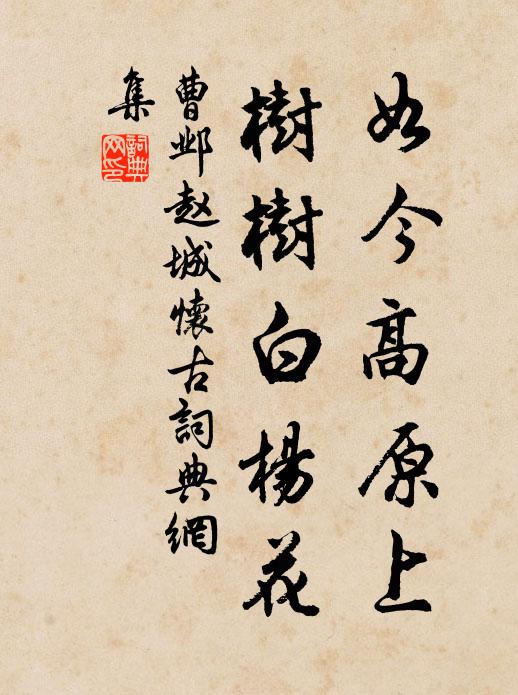 如今高原上
樹樹白楊花
曹邺赵城懷古詞典網
集
詞典
网印